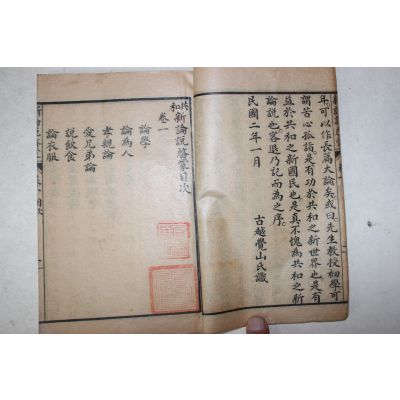 年可以作長篇大論矣或曰先生教授初學可
謂苦心孤詣是有功於共和之新世界也是有
益於共和之新國民也是真不愧為共和之新
論說也客退乃記而為之序
民國二年一月
古越覺山民識
共和新論說啓蒙目次
卷一
論學
論為人
孝親論
愛兄弟論
說飲食
論衣服